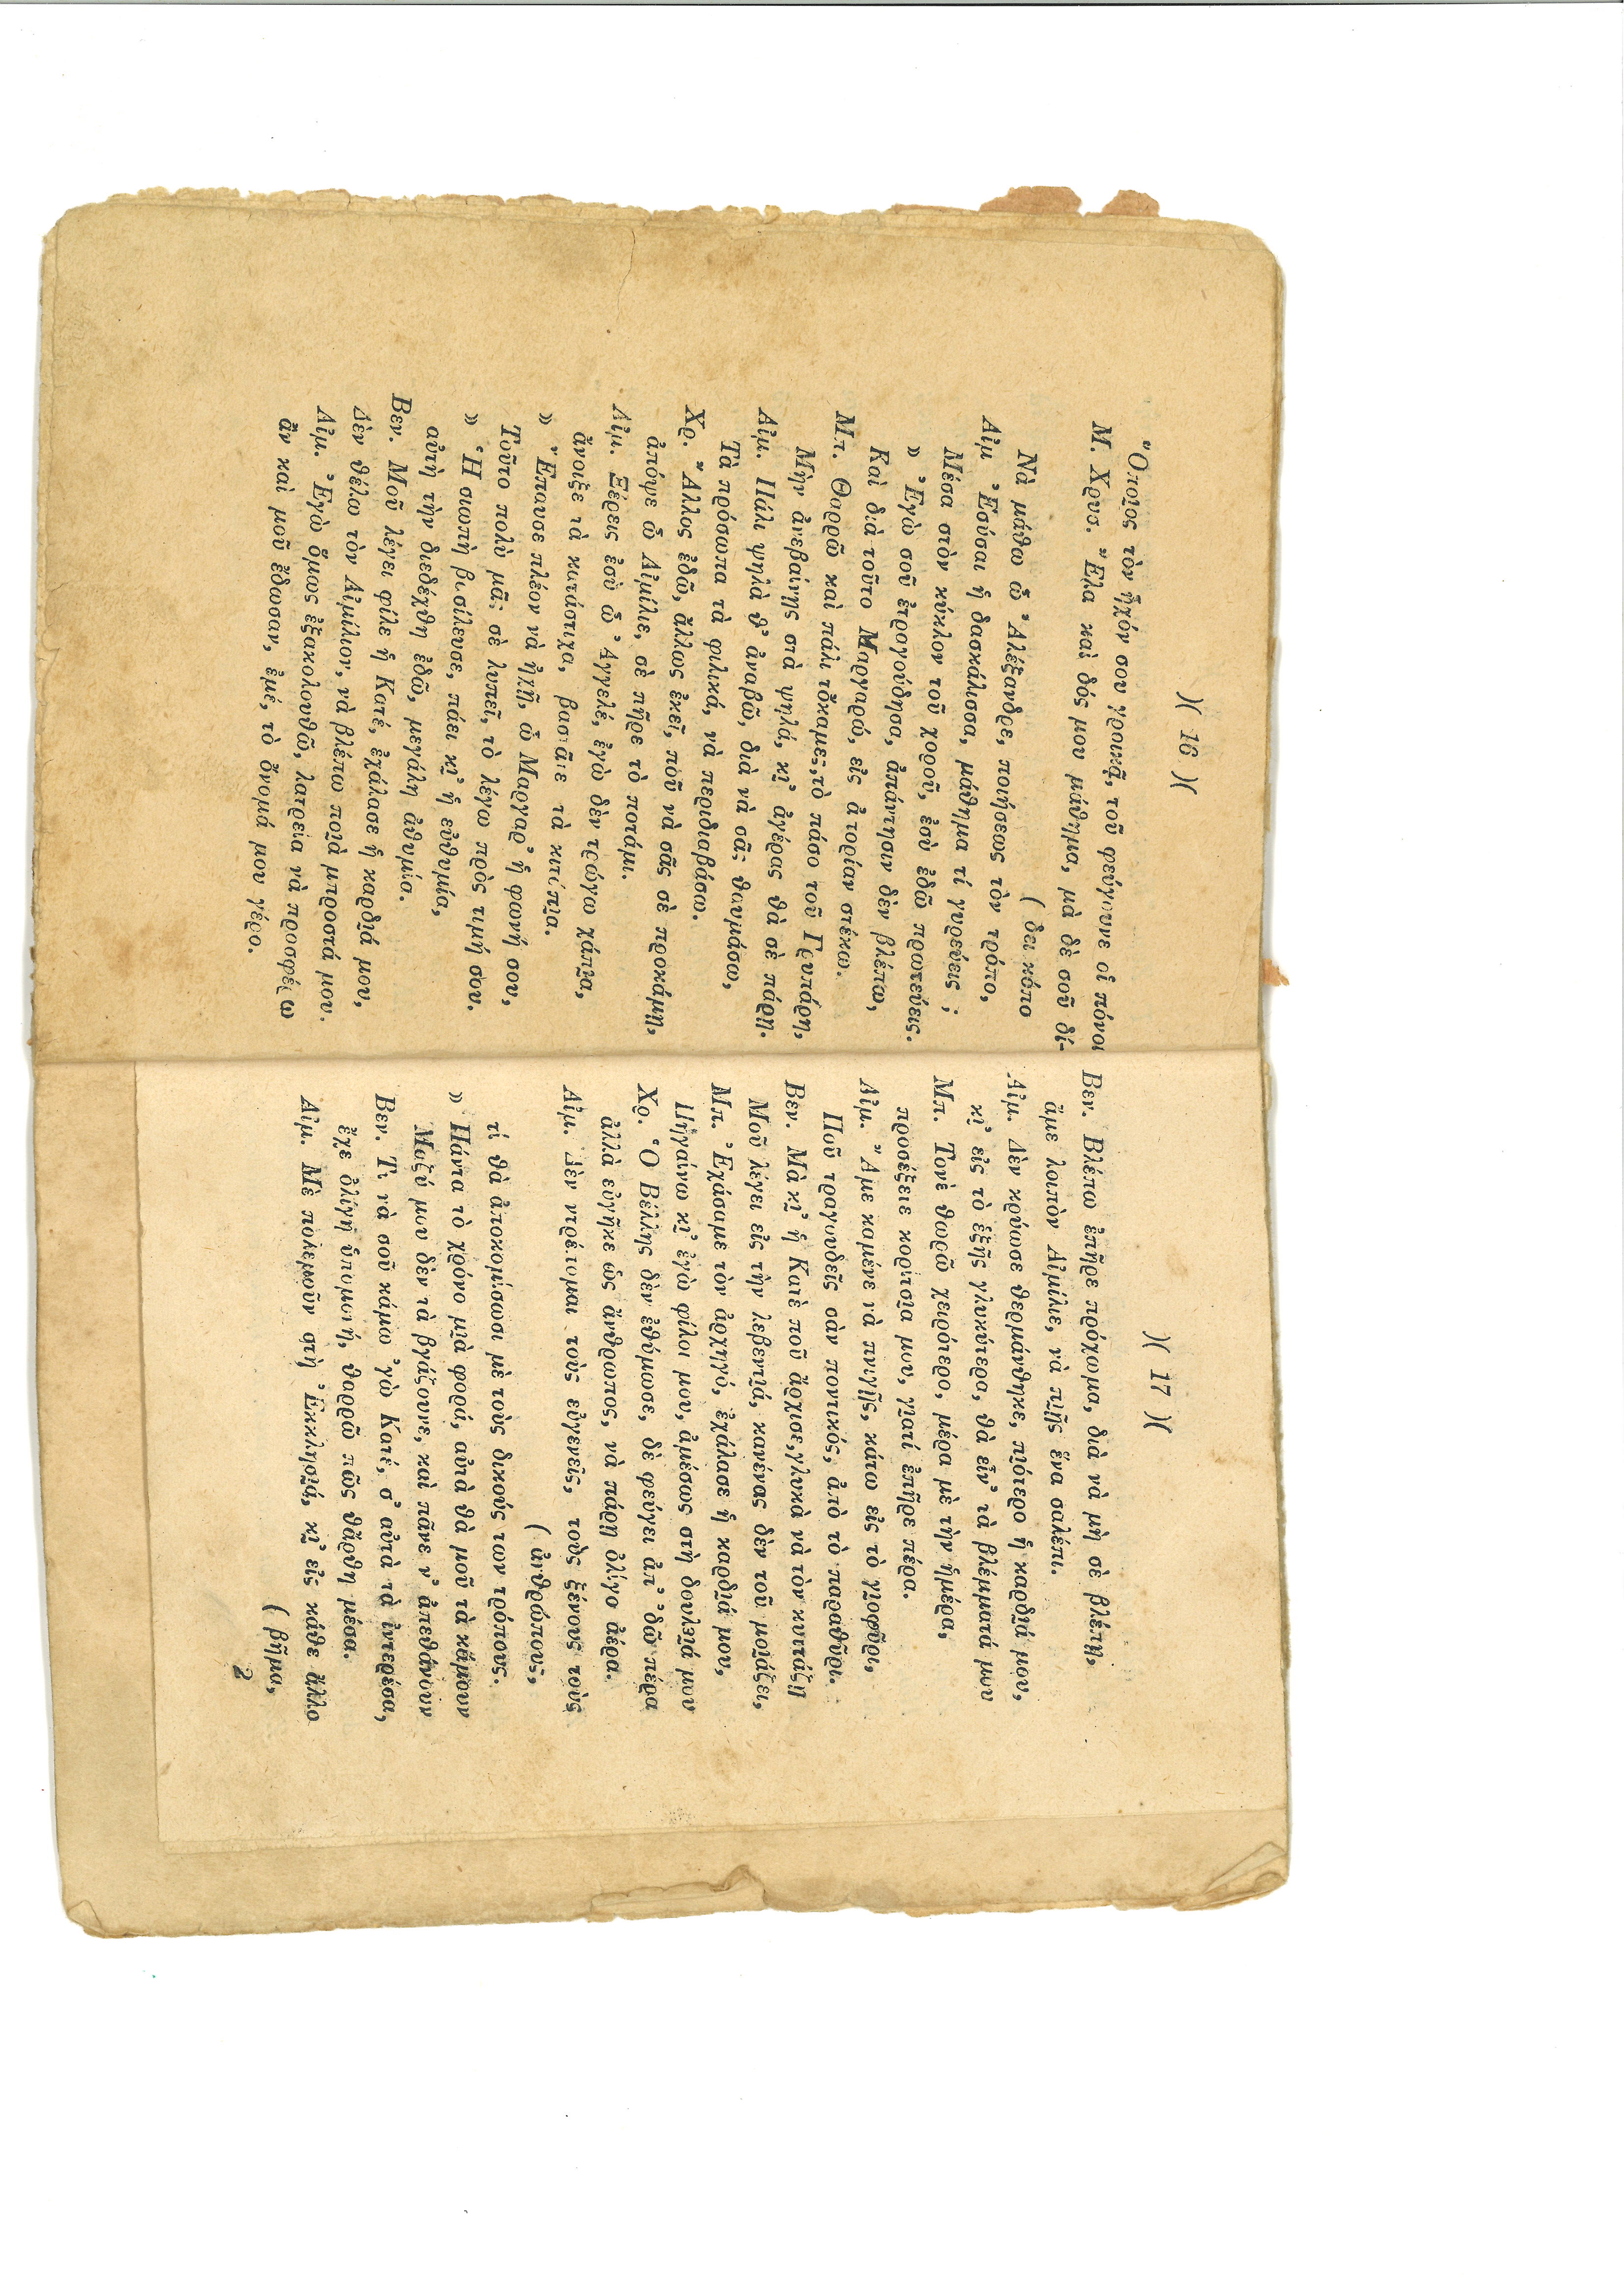 )( 16 )(
Ὅποιος τὸν ἦχόν σου γροικᾷ, τοῦ φεύγουνε οἱ πόνοι
Μ. Χρυσ. Ἔλα καὶ δός μου μάθημα, μὰ δὲ σοῦ δί-
( δει κόπο
Νὰ μάθω ὦ Ἀλέξανδρε, ποιήσεως τὸν τρόπο,
Αἰμ Ἐσύσαι ἡ δασκάλισσα, μάθημα τί γυρεύεις ;
Μέσα στὸν κύκλον τοῦ χοροῦ, ἐσὺ ἐδῶ πρωτεύεις.
» Ἐγὼ σοῦ ἐτραγούδησα, ἀπάντησιν δὲν βλέπω,
Καὶ διὰ τοῦτο Μαργαρώ, εἰς ἀπορίαν στέκω.
Μπ. Θαρρῶ καὶ πάλι τὄκαμες, τὸ πάσο τοῦ Γρυπάρη,
Μὴν ἀνεβαίνῃς στὰ ψηλά, κι' ἀγέρας θὰ σὲ πάρῃ.
Αἰμ. Πάλι ψηλὰ θ' ἀναβῶ, διὰ νὰ σᾶς θαυμάσω,
Τὰ πρόσωπα τὰ φιλικά, νὰ περιδιαβάσω.
Χρ. Ἄλλος ἐδῶ, ἄλλως ἐκεῖ, ποῦ νὰ σᾶς σὲ προκάμῃ,
ἀπόψε ὦ Αἰμίλιε, σὲ πῆρε τὸ ποτάμι.
Αἰμ. Ξέρεις ἐσὺ ὦ Ἀγγελέ, ἐγὼ δὲν τρώγω χάπια,
ἄνοιξε τὰ κατάστιχα, βαστᾶτε τὰ κιτάπια.
» Ἔπαυσε πλέον νὰ ἠχῇ, ὦ Μαργαρ' ἡ φωνή σου,
Τοῦτο πολὺ μᾶς σὲ λυπεῖ, τὸ λέγω πρὸς τιμή σου.
» Ἡ σιωπὴ βασίλευσε, πάει κι' ἡ εὐθυμία,
αὐτὴ τὴν διεδέχθη ἐδῶ, μεγάλη ἀθυμία.
Βεν. Μοῦ λέγει φίλε ἡ Κατέ, ἐχάλασε ἡ καρδιά μου,
Δὲν θέλω τὸν Αἰμίλιον, νὰ βλέπω ποιὰ μπροστά μου.
Αἰμ. Ἐγὼ ὅμως ἐξακολουθῶ, λατρεία νὰ προσφέρω
ἂν καὶ μοῦ ἔδωσαν, ἐμέ, τὸ ὄνομά μου γέρο.
)( 17 )(
Βεν. Βλέπω ἐπῆρε πρόχωμα, διὰ νὰ μὴ σὲ βλέπῃ,
ἄμε λοιπὸν Αἰμίλιε, νὰ πιῇς ἕνα σαλέπι.
Αἰμ. Δὲν κρύωσε θερμάνθηκε, πιότερο ἡ καρδιά μου,
κι' εἰς τὸ ἑξῆς γλυκύτερα, θὰ εἶν' τὰ βλέμματά μου
Μπ. Τονὲ θωρῶ χειρότερο, μέρα μὲ τὴν ἡμέρα,
προσέξειε κορίτσια μου, γιατί ἐπῆρε πέρα.
Αἰμ. Ἄμε καμένε νὰ πνιγῇς, κάτω εἰς τὸ γιοφῦρι,
Ποῦ τραγουδεῖς σὰν ποντικός, ἀπὸ τὸ παραθῦρι.
Βεν. Μὰ κι' ἡ Κατὲ ποῦ ἄρχισε, γλυκὰ νὰ τὸν κυττάζῃ
Μοῦ λέγει εἰς τὴν λεβεντιά, κανένας δὲν τοῦ μοιάζει,
Μπ. Ἐχάσαμε τὸν ἀρχηγό, ἐχάλασε ἡ καρδιά μου,
Πηγαίνω κι' ἐγὼ φίλοι μου, ἀμέσως στὴ δουλειά μου
Χρ. Ὁ Βέλλης δὲν ἐθύμωσε, δὲ φεύγει ἀπ' δῶ πέρα
ἀλλὰ εὐγῆκε ὡς ἄνθρωπος, νὰ πάρῃ ὀλίγο ἀέρα.
Αἰμ. Δὲν ντρέπομαι τοὺς εὐγενεῖς, τοὺς ξένους τοὺς
( ἀνθρώπους,
τί θὰ ἀποκομίσωσι μὲ τοὺς δικούς των τρόπους.
» Πάντα τὸ χρόνο μιὰ φορά, αὐτὰ θὰ μοῦ τὰ κάμουν
Μαζύ μου δὲν τὰ βγάζουνε, καὶ πᾶνε ν' ἀπεθάνουν
Βεν. Τι νὰ σοῦ κάμω 'γὼ Κατέ, σ' αὐτὰ τὰ ἰντερέσα,
ἔχε ὀλίγη ὑπομονή, θαρρῶ πῶς θἄρθῃ μέσα.
Αἰμ. Μὲ πολεμοῦν στὴ Ἐκκλησιά, κι' εἰς κάθε ἄλλο
( βῆμα,
2